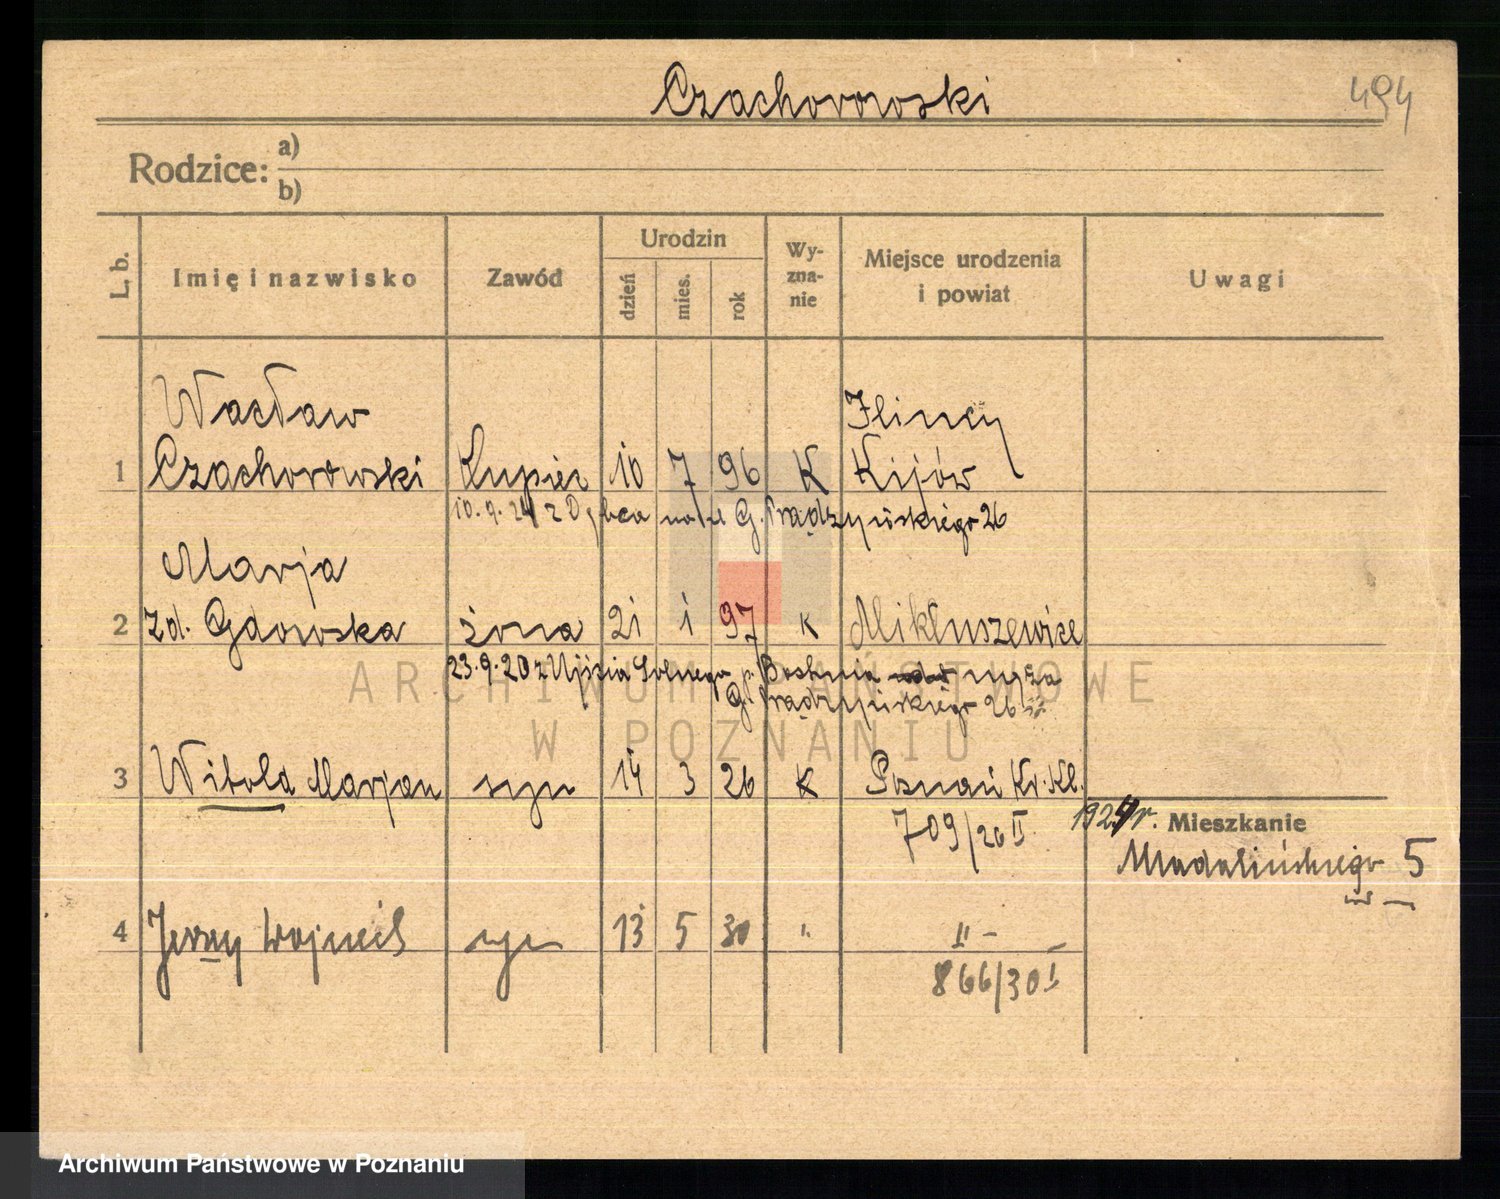 Czachorowski
494
Rodzice: a)
b)
L. b. Imię i nazwisko Zawód Urodzin dzień mies. rok Wy-zna-nie Miejsce urodzenia i powiat Uwagi
Wacław Ilincy
1 Czachorowski Kupiec 10 7 96 K Kijów
10.9.24 z Dębca na ul G. Prądzyńskiego 26
Marja
2 zd. Gdowska żona 21 1 97 K Mikluszewice
23.9.20 z Ujścia Solnego p. Bochnia męża
G. Prądzyńskiego 26
3 Witold Marjan syn 14 3 26 K Poznań Kr. Kl.
709/26 II 1924 r. Mieszkanie
Madalińskiego 5
4 Jerzy Wojciech syn 13 5 30 " II -
866/30 I
ARCHIWUM PAŃSTWOWE
W POZNANIU
Archiwum Państwowe w Poznaniu